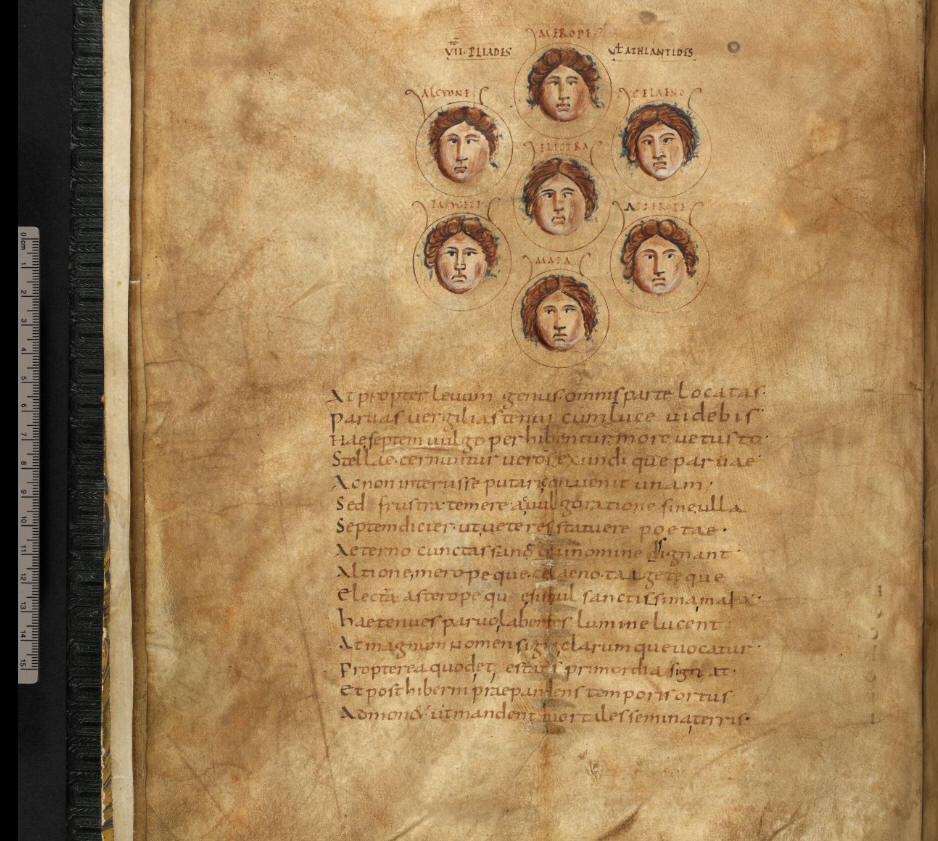 MEROPE
VII PLIADES
Vł ATHLANTIDES
ALCYONE
CELAENO
ELECTRA
ASTEROPE
MAIA
At propter levum genus omnis parte locatas
Parvas vergilias tenui cum luce videbis
Hae septem vulgo perhibentur more vetusto
Stellae cernuntur vero sex undique parvae
Ac non interisse putari convenit unam
Sed frustra temere a vulgo ratione sine ulla
Septem dicier ut veteres statuere poetae
Aeterno cunctas nomine dignant
Altione merope que celaeno taygete que
Electra asterope que simul sanctissima maia
Hae tenues parvo labentes lumine lucent
At magnum nomen signi clarum que vocatur
Propterea quod et estatis primordia signat
Et post hiberni praepandens temporis ortus
Admonet ut mandent mortales semina terris
0cm 1 2 3 4 5 6 7 8 9 10 11 12 13 14 15